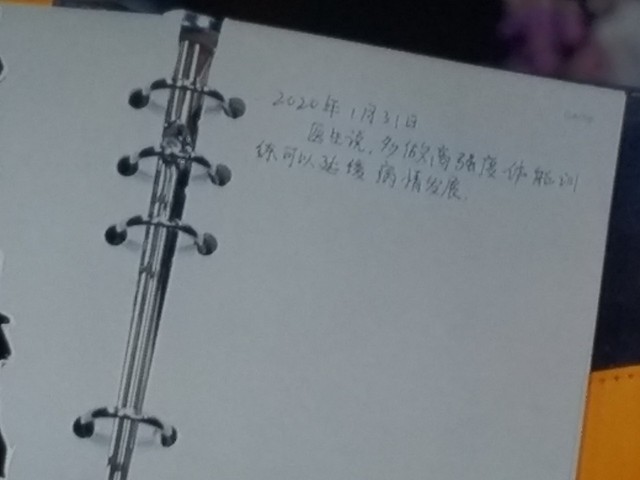 2020年1月31日
医生说，多做高强度体能训
练可以延缓病情发展.